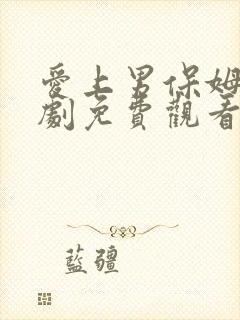 愛上男保姆
劇免費觀看
藍疆